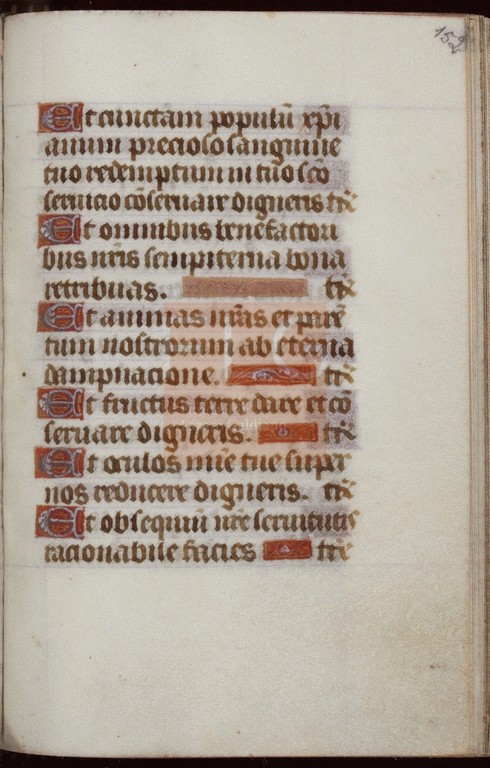 152
Et cunctam populū xp̄i
anum precioso sanguine
tuo redemptum in tuo scō
seruicio cōseruare digneris te
Et omnibus benefactori
bus nr̄is sempiterna bona
retribuas. te
Et animas nr̄as et parē
tum nostrorum ab eterna
dampnacione. te
Et fructus terre dare et cō
seruare digneris. te
Et oculos mīe tue super
nos reducere digneris. te
Et obsequiū nr̄e seruitutis
racionabile facies te